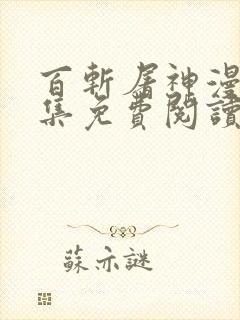 百斬屠神漫
集免費閱讀
蘇亦謎